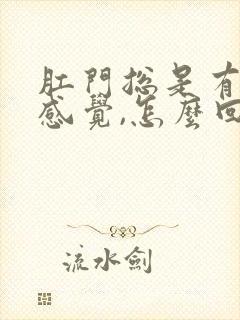 肛門總是有
感覺,怎麼回
流水劍